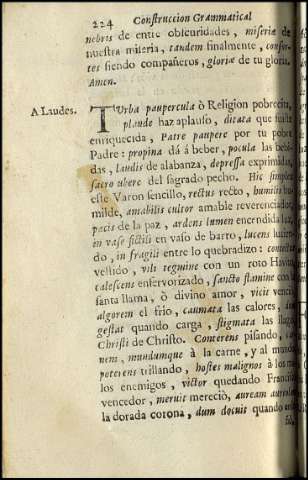 224 Construccion Grammatical
nebris de entre obscuridades, miseriæ de
nuestra miseria, tandem finalmente, consor-
tes siendo compañeros, gloriæ de tu gloria.
Amen.
A Laudes. TUrba paupercula ò Religion pobrecita,
plaude haz aplauso, ditata que fuiste
enriquecida, Patre paupere por tu pobre
Padre: propina dá á beber, pocula las bebi-
das, laudis de alabanza, depressa exprimidas,
sacro ubere del sagrado pecho. Hic simplex
este Varon sencillo, rectus recto, humilis hu-
milde, amabilis cultor amable reverenciador,
pacis de la paz, ardens lumen encendida luz,
in vase fictili en vaso de barro, lucens lucien-
do, in fragili entre lo quebradizo: contectus
vestido, vili tegmine con un roto Havito,
calescens enfervorizado, sancto flamine con la
santa llama, ò divino amor, vicit venció,
algorem el frio, caumata las calores,
gestat quando carga, stigmata las llagas
Christi de Christo. Conterens pisando,
nem, mundumque à la carne, y al mundo,
poterens trillando, hostes malignos à los
los enemigos, victor quedando Francisco
vencedor, meruit mereciò, auream aureolam
la dorada corona, dum docuit quando